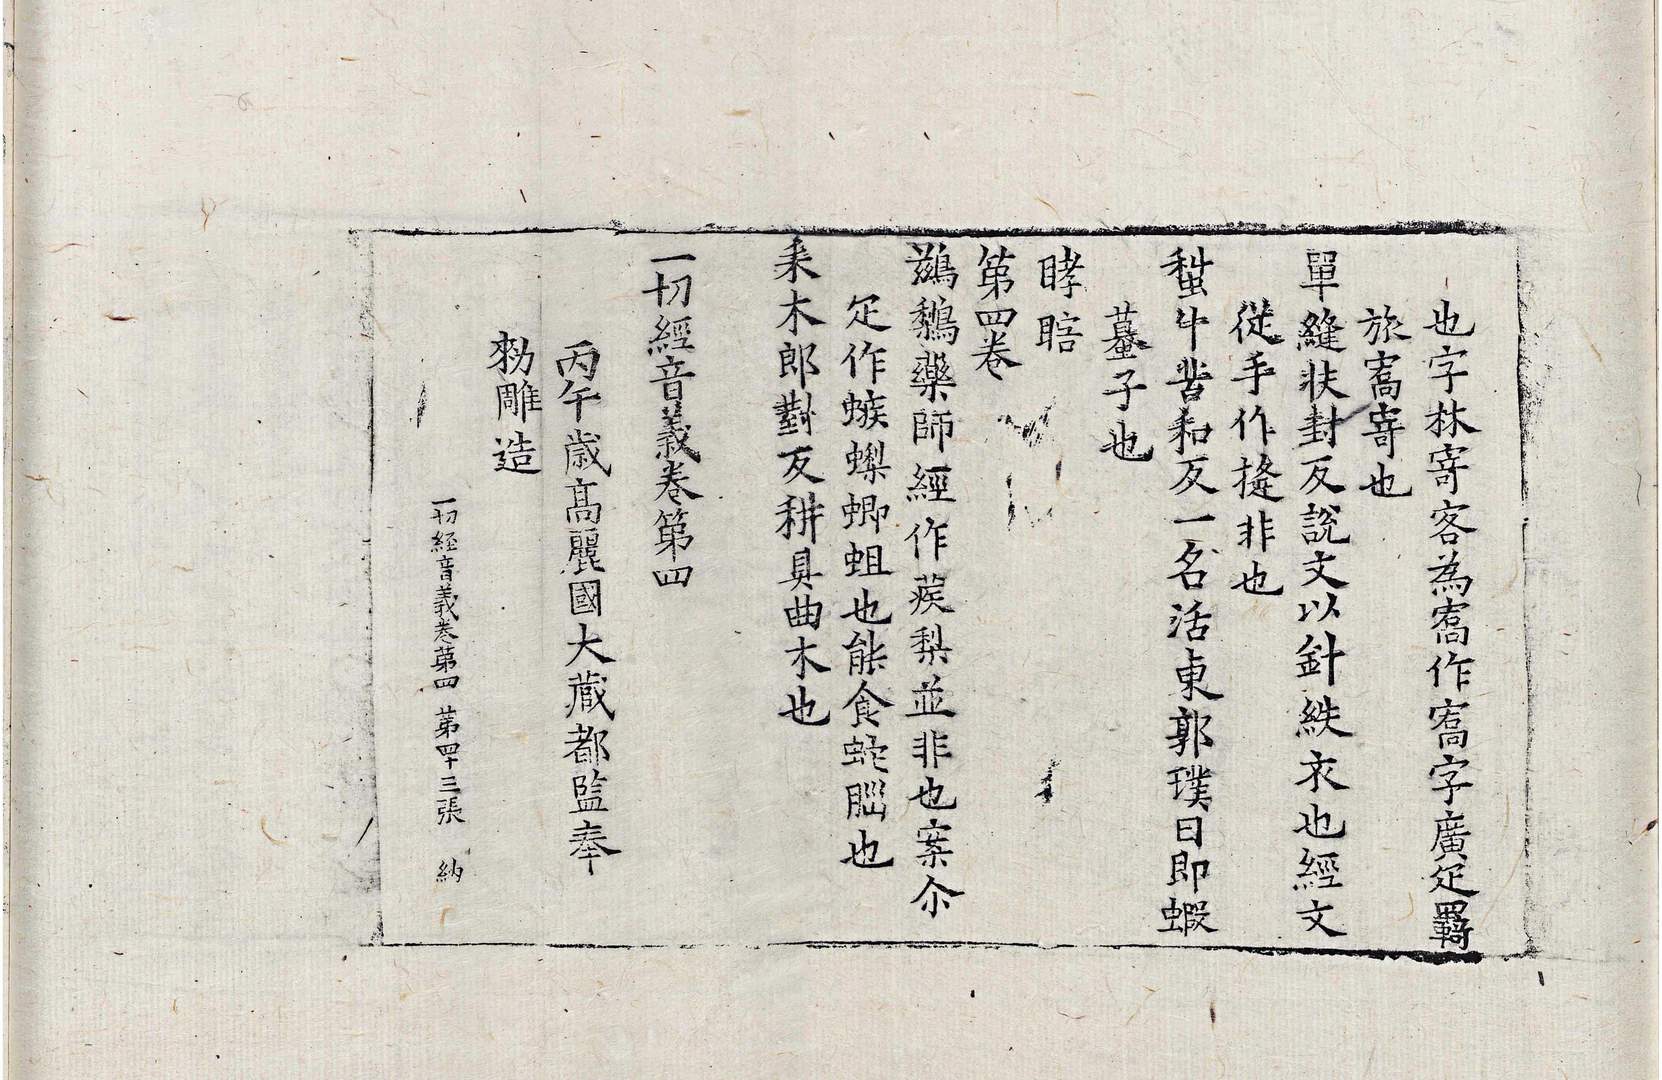 也字林寄客為寯作寯字廣疋羈
旅寯寄也
單縫扶封反說文以針紩衣也經文
從手作摓非也
蚩斗苦和反一名活東郭璞曰即蝦
蟇子也
眵瞎
第四卷
鷀鶿藥師經作蒺梨並非也案尒
疋作蝍蛆也能食虵腦也
耒木郎對反耕具曲木也
一切經音義卷第四
丙午歳高麗國大藏都監奉
勑雕造
一切経音義卷第四 第四十三張 納